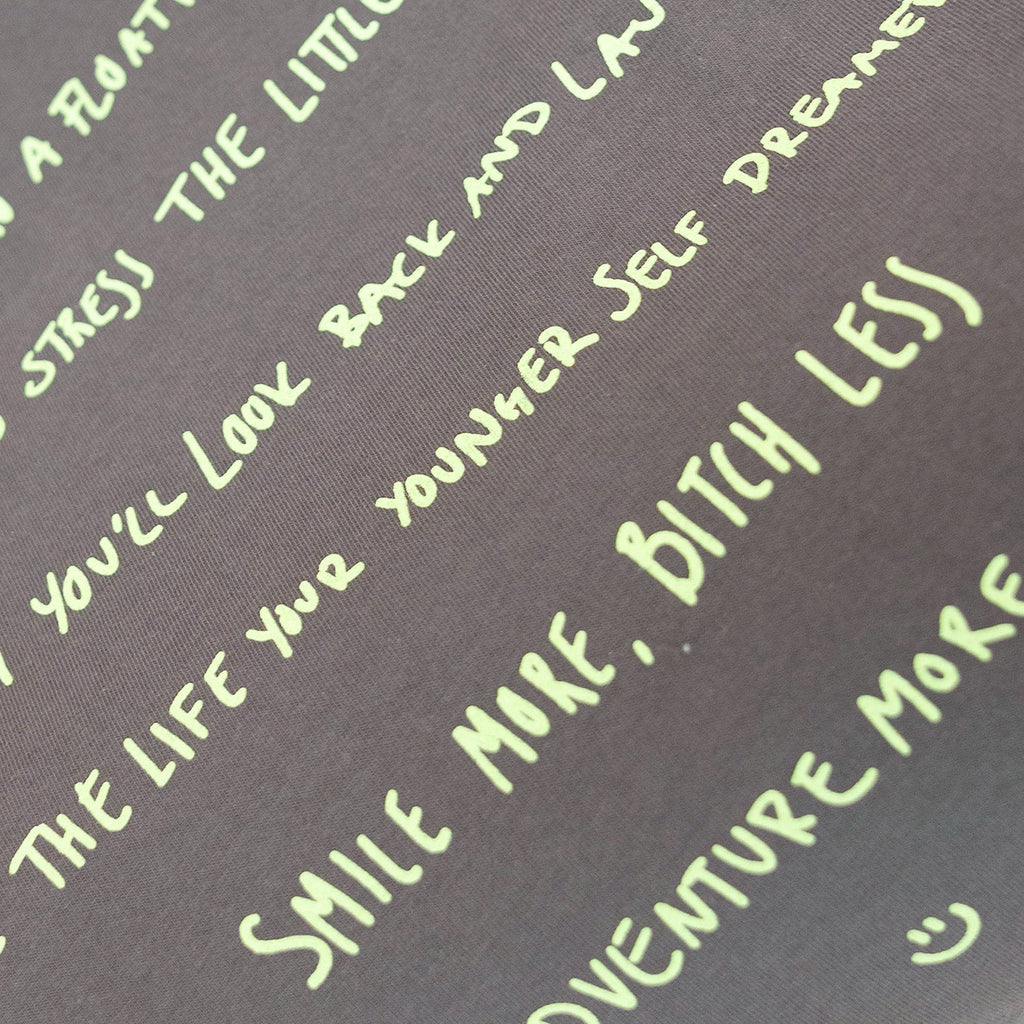 A FLOAT
STRESS THE LITTLE
YOU'LL LOOK BACK AND LAU
THE LIFE YOUR YOUNGER SELF DREAME
SMILE MORE, BITCH LESS
DVENTURE MORE